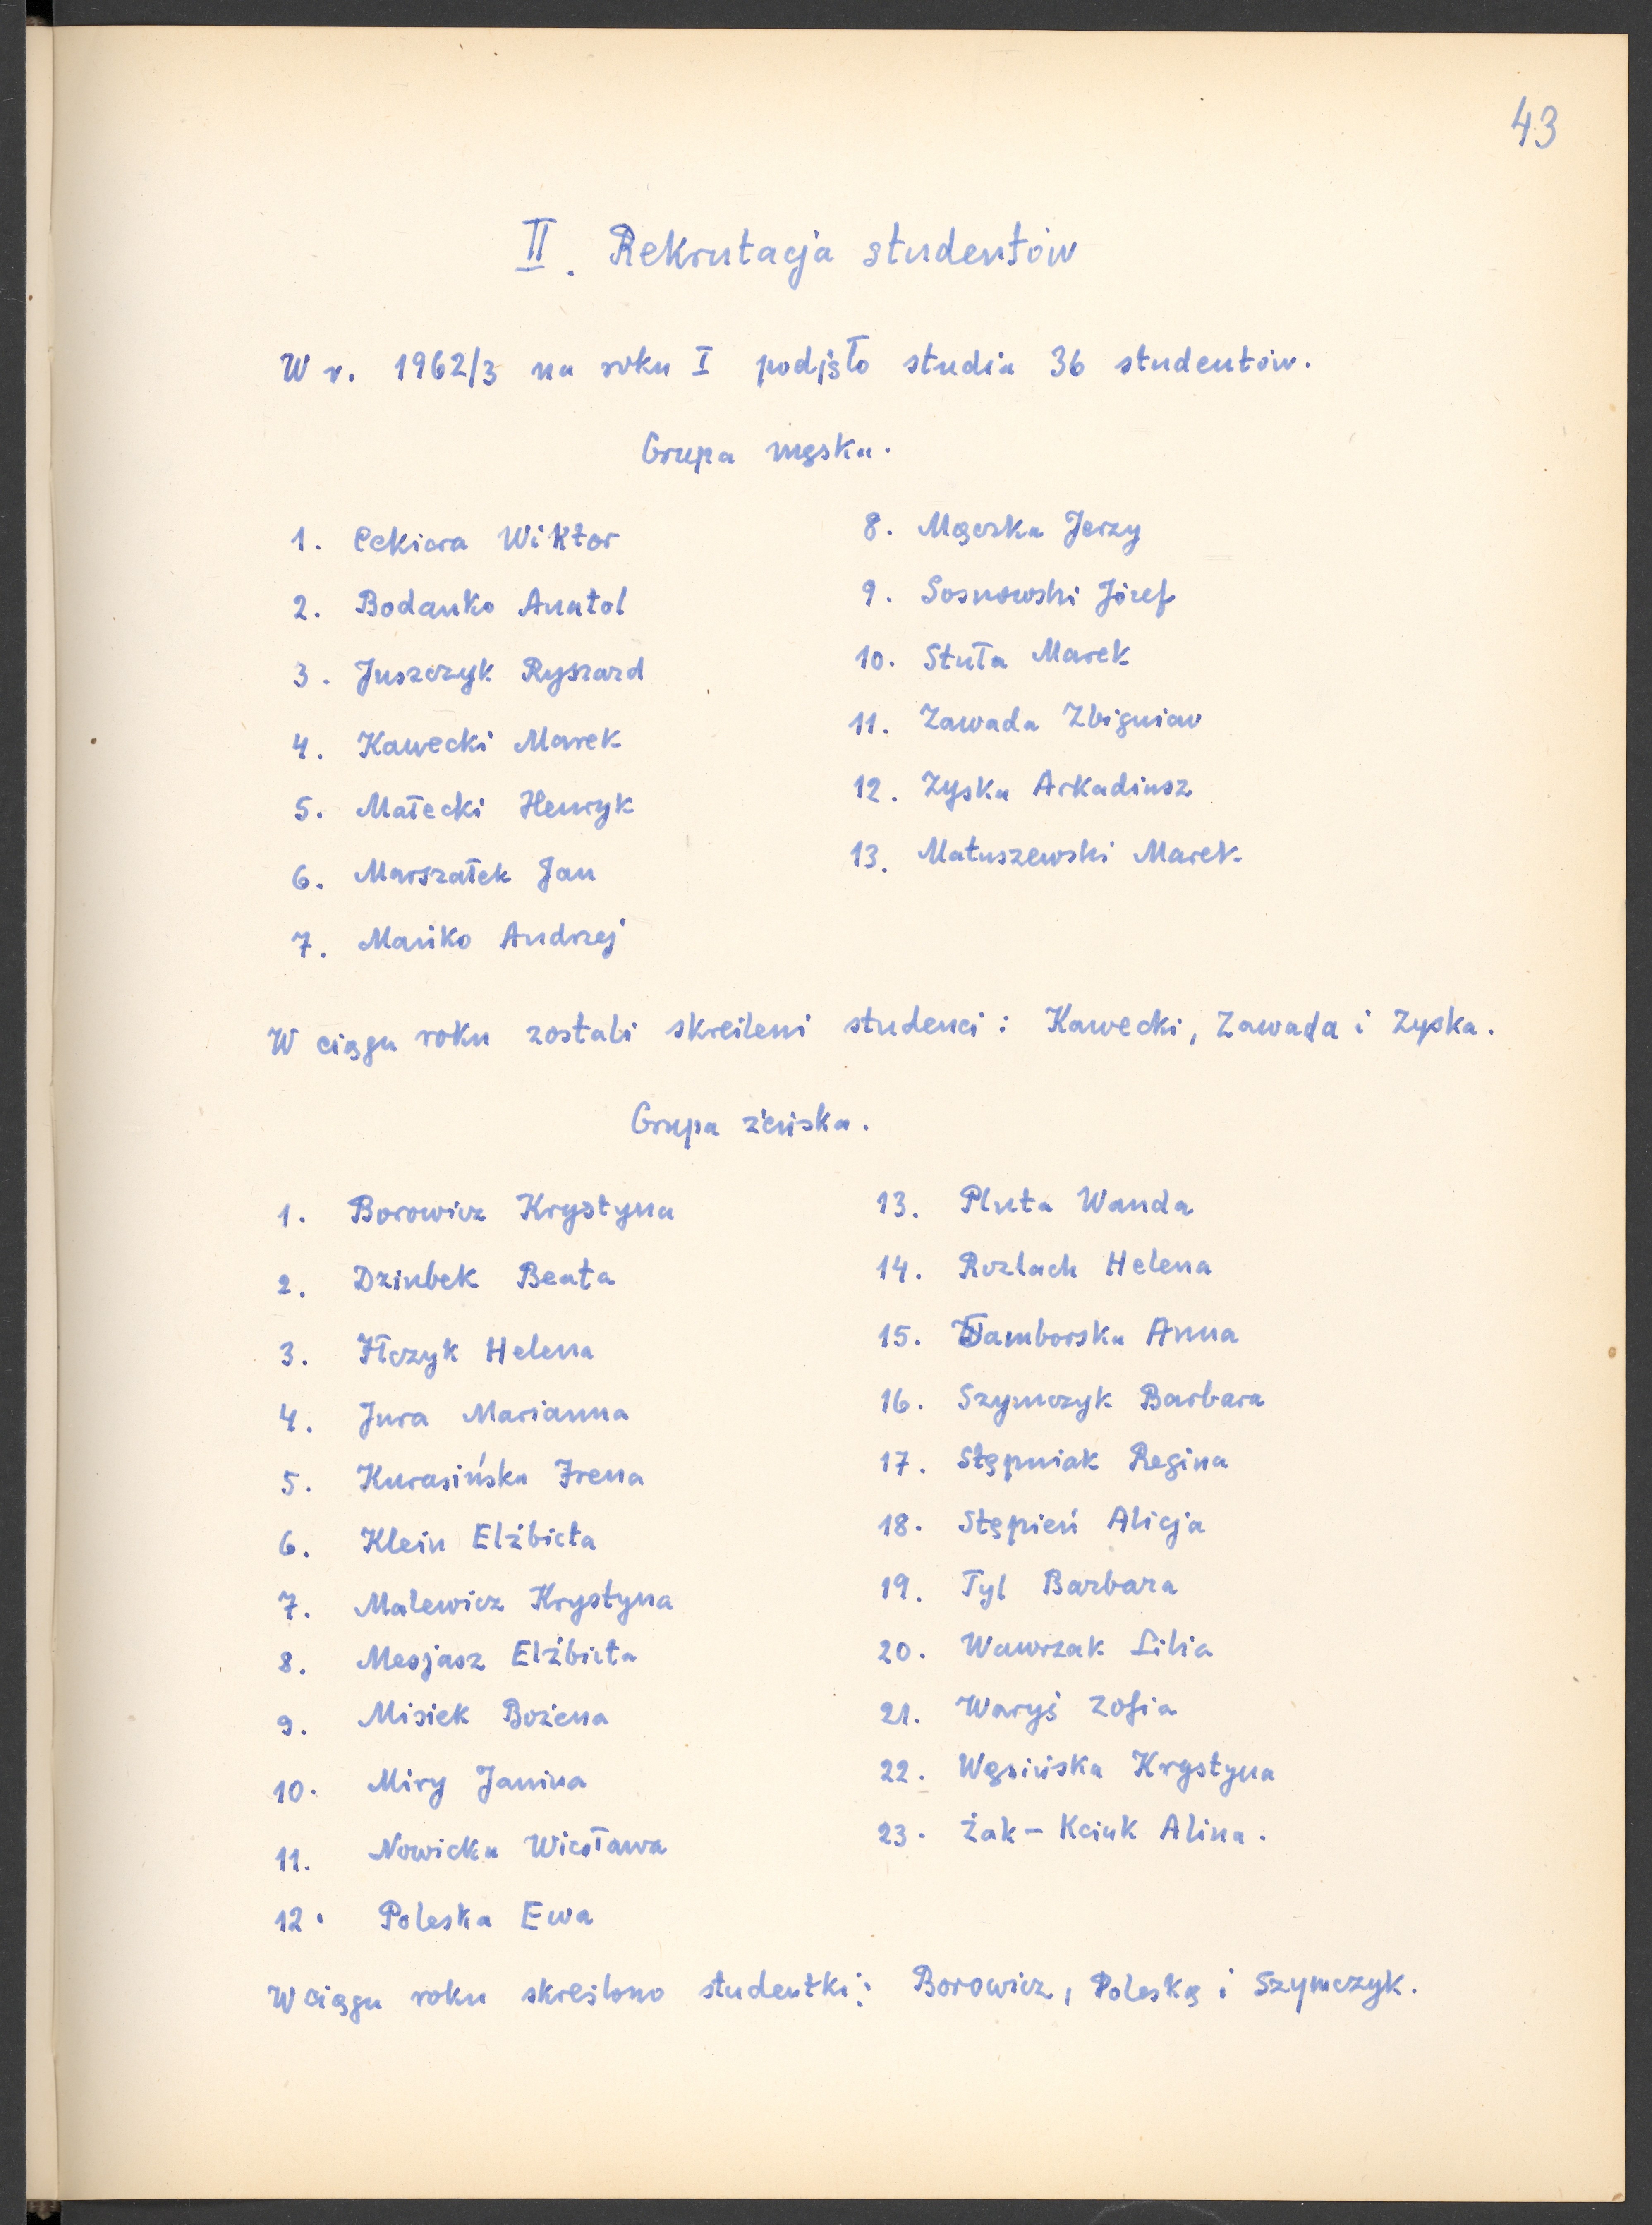 43
II. Rekrutacja studentów
W r. 1962/3 na roku I podjęło studia 36 studentów.
Grupa męska.
1. Cekiera Wiktor
2. Bodanko Anatol
3. Juszczyk Ryszard
4. Kawecki Marek
5. Małecki Henryk
6. Marszałek Jan
7. Mańko Andrzej
8. Męcoska Jerzy
9. Sosnowski Józef
10. Stuła Marek
11. Zawada Zbigniew
12. Zyska Arkadiusz
13. Matuszewski Marek
W ciągu roku zostali skreśleni studenci: Kawecki, Zawada i Zyska.
Grupa żeńska.
1. Borowicz Krystyna
2. Dziubek Beata
3. Iłczyk Helena
4. Jura Marianna
5. Kurasińska Irena
6. Klein Elżbieta
7. Malewicz Krystyna
8. Mesjasz Elżbieta
9. Misiek Bożena
10. Miry Janina
11. Nowicka Wiesława
12. Poleska Ewa
13. Pluta Wanda
14. Rozlach Helena
15. Samborska Anna
16. Szymczyk Barbara
17. Stępniak Regina
18. Stępień Alicja
19. Tyl Barbara
20. Wawrzak Lilia
21. Waryś Zofia
22. Węsińska Krystyna
23. Żak-Kciuk Alina.
W ciągu roku skreślono studentki: Borowicz, Poleską i Szymczyk.